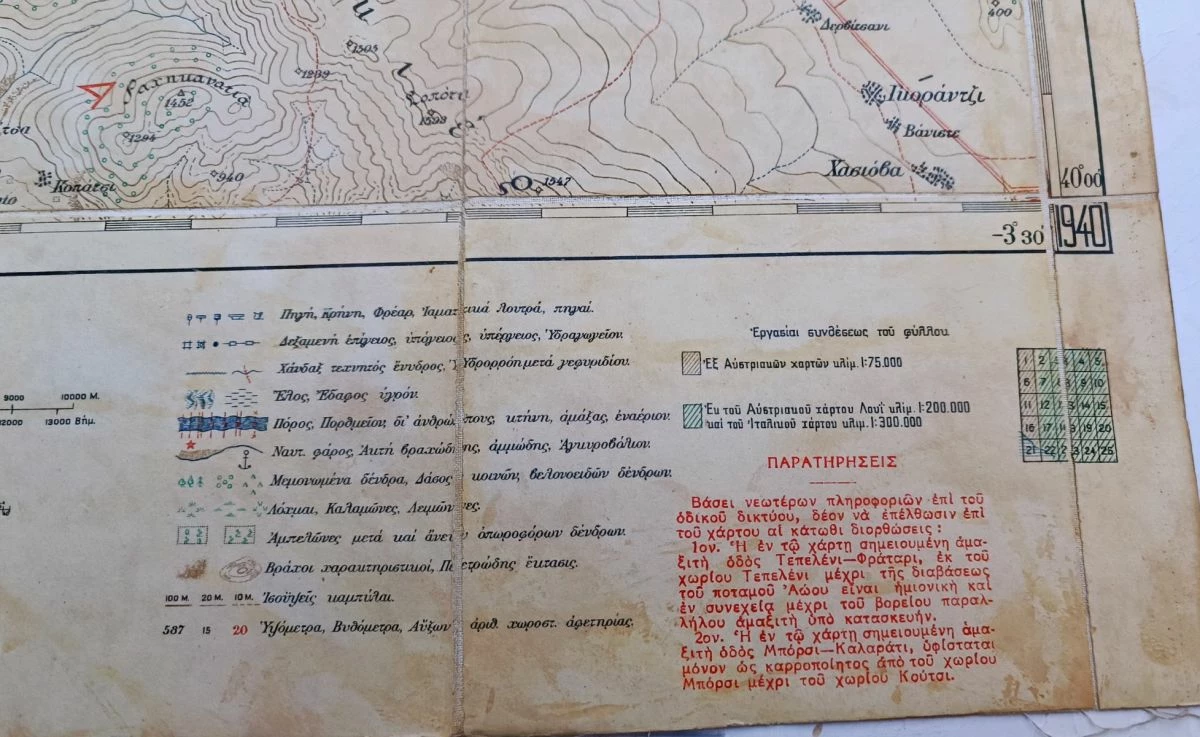 Δερβιτσανι
400
1505
1239
Φαρηκανατια
1452
1294
1593
Ικοράντζι
Βάνιστε
940
Κοπάτσι
1547
Χασιόβα
40°00
-3°30
1940
Πηγή, κρήνη, Φρέαρ, Ἰαματικά λουτρά, πηγαί.
Δεξαμενή ἐπίγειος, ὑπόγειος, ὑπέργειος, Ὑδραγωγεῖον.
Χάνδαξ τεχνητός ἔνυδρος, Ὑδρορρόη μετά γεφυριδίου.
Ἕλος, Ἔδαφος ὑγρόν.
Πόρος, Πορθμεῖον, δι' ἀνθρώπους, κτήνη, ἁμάξας, ἐναέριον.
Ναυτ. φάρος, Ἀκτή βραχώδης, ἀμμώδης, Ἀγκυροβόλιον.
Μεμονωμένα δένδρα, Δάσος κοινῶν, βελονοειδῶν δένδρων.
Λόχμαι, Καλαμῶνες, Λειμῶνες.
Ἀμπελῶνες μετά καί ἄνευ ὀπωροφόρων δένδρων.
Βράχοι χαρακτηριστικοί, Πετρώδης ἔκτασις.
100 Μ. 20 Μ. 10 Μ. Ἰσοϋψεῖς καμπύλαι.
587 15 20 Ὑψόμετρα, Βυθόμετρα, Αὔξων ἀριθ. χωροστ. ἀφετηρίας.
9000 10000 Μ.
12000 13000 Βήμ.
Ἐργασίαι συνθέσεως τοῦ φύλλου
Ἐξ Αὐστριακῶν χαρτῶν κλίμ. 1:75.000
Ἐκ τοῦ Αὐστριακοῦ χάρτου Λουϊ κλίμ. 1:200.000
καί τοῦ Ἰταλικοῦ χάρτου κλίμ. 1:300.000
1 2 3 4 5
6 7 8 9 10
11 12 13 14 15
16 17 18 19 20
21 22 23 24 25
ΠΑΡΑΤΗΡΗΣΕΙΣ
Βάσει νεωτέρων πληροφοριῶν ἐπὶ τοῦ
ὁδικοῦ δικτύου, δέον νὰ ἐπέλθωσιν ἐπὶ
τοῦ χάρτου αἱ κάτωθι διορθώσεις :
1ον. Ἡ ἐν τῷ χάρτῃ σημειουμένη ἁμα-
ξιτὴ ὁδὸς Τεπελένι—Φράταρι, ἐκ τοῦ
χωρίου Τεπελένι μέχρι τῆς διαβάσεως
τοῦ ποταμοῦ Ἀώου εἶναι ἡμιονικὴ καὶ
ἐν συνεχείᾳ μέχρι τοῦ βορείου παραλ-
λήλου ἁμαξιτὴ ὑπὸ κατασκευήν.
2ον. Ἡ ἐν τῷ χάρτῃ σημειουμένη ἁμα-
ξιτὴ ὁδὸς Μπόρσι—Καλαράτι, ὑφίσταται
μόνον ὡς καρροποίητος ἀπὸ τοῦ χωρίου
Μπόρσι μέχρι τοῦ χωρίου Κούτσι.